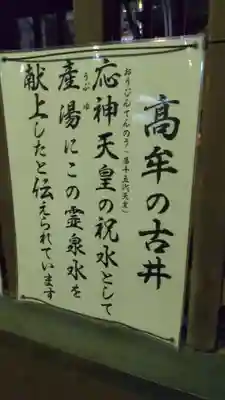 高牟の古井
おうじんてんのう(第十五代天皇)
応神天皇の祝水として
うぶゆ
産湯にこの霊泉水を
献上したと伝えられています